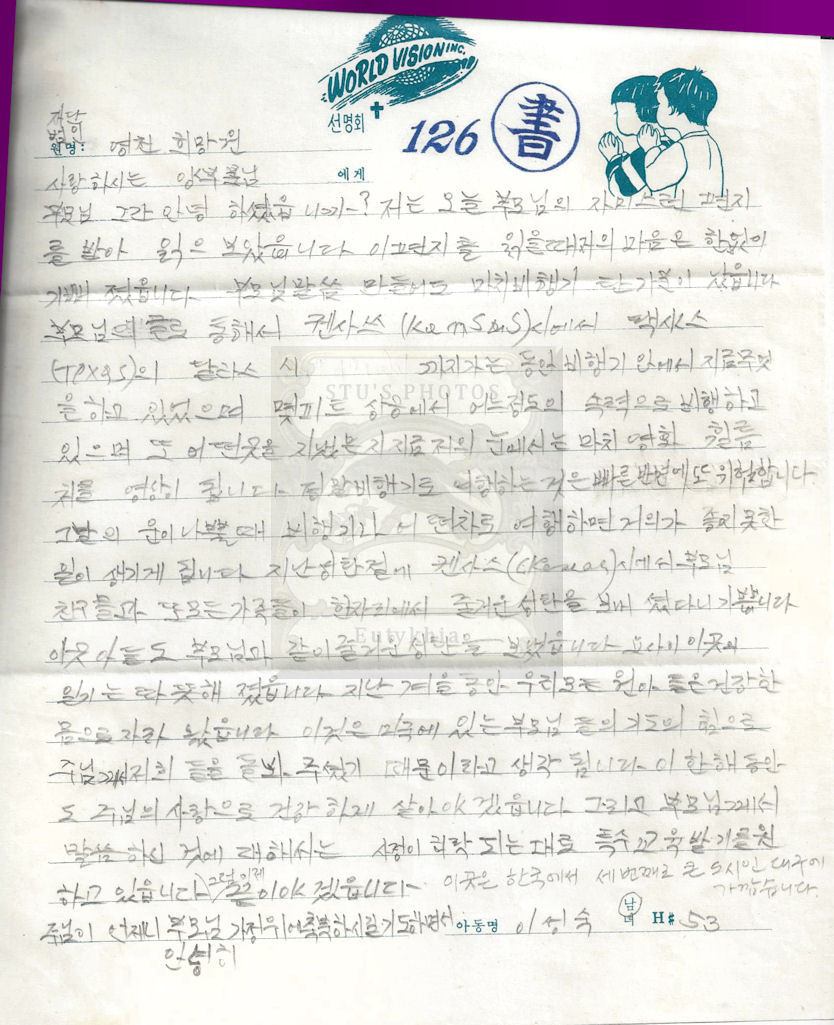 WORLD VISION INC.
선명회
126 書
재단
법인
원명: 영천 희망원
사랑하시는 양부모님 에게
부모님 그간 안녕 하셨읍니까? 저는 오늘 부모님의 자미스런 편지
를 받아 읽으 보았읍니다 이편지를 읽을때 저의 마음은 한없이
기뻐 졌읍니다. 부모님 말씀 만들어도 마치 비행기 탄 기분이 났읍니다
부모님의 글로 통해서 켄사쓰 (KanSaS)시에서 떽사스
(Texas)의 달라스 시 까지가는 동안 비행기 안에서 지금무엇
을 하고 있었으며 몇피트 상공에서 어느정도의 속력으로 비행하고
있으며 또 어떤곳을 지났는지 지금 저의 눈에서는 마치 영화 휠름
처름 영상이 됩니다. 정말 비행기로 여행하는 것은 빠른 반면에 또 위험합니다.
그날의 운이 나쁠때 비행기나 열차로 여행하면 거의가 좋지못한
일이 생기게 됩니다 지난 성탄절에 켄사스(Kansas)시에서 부모님
친구들과 또 모든 가족들이 한자리에서 줄거운 성탄을 보내 셨다니 기쁩니다
이곳 아들도 부모님과 같이 줄거운 성탄을 보냈읍니다 요사이 이곳의
일기는 따뜻해 졌읍니다. 지난 겨울 동안 우리모든 원아 들은 건강한
몸으로 자라 왔읍니다 이것은 미국에 있는 부모님 들의 기도의 힘으로
주님께서 저희 들을 돌봐 주셨기 때문이라고 생각 됩니다. 이 한해 동안
도 주님의 사랑으로 건강 하게 살아야 겠읍니다 그리고 부모님께서
말씀 하신 것에 대해서는 사정이 허락 되는 대로 특수 교육 받기를 원
하고 있읍니다. 그럼 이제 끝이야 졌읍니다- 이곳은 한국에서 세번째로 큰 도시인 대구에
가깝습니다.
주님이 언제나 부모님 가정위에 축복하시길 기도하면서 아동명 이성숙 남 녀 H# 53
안녕히
STU'S PHOTOS
Eutykhia